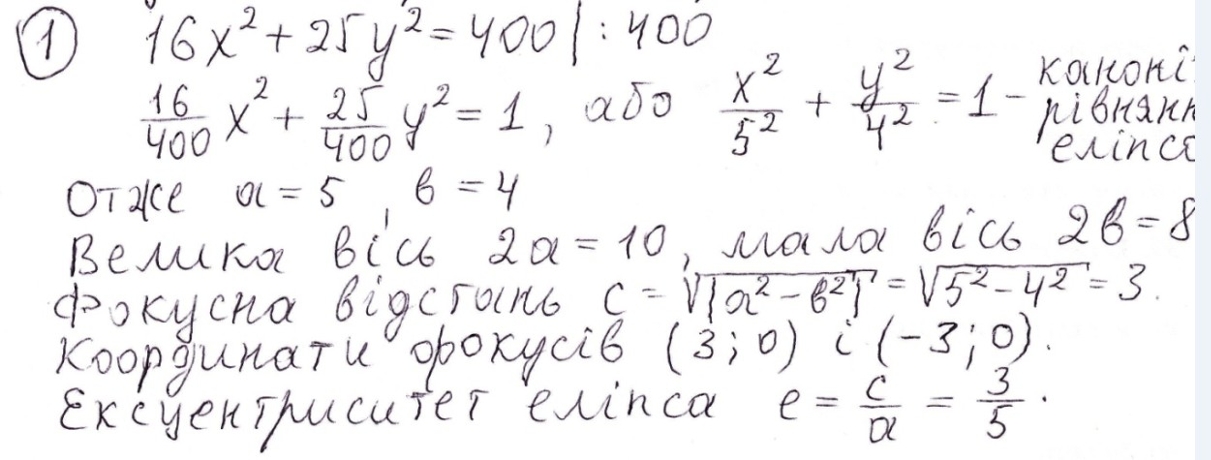 ① 16x² + 25y² = 400 | : 400
16/400 x² + 25/400 y² = 1, або x²/5² + y²/4² = 1 – каноні
рівнянн
еліпса
Отже a = 5, b = 4
Велика вісь 2a = 10, мала вісь 2b = 8
Фокусна відстань c = √|a² – b²| = √5² – 4² = 3.
Координати фокусів (3; 0) і (–3; 0).
Ексцентриситет еліпса e = c/a = 3/5.